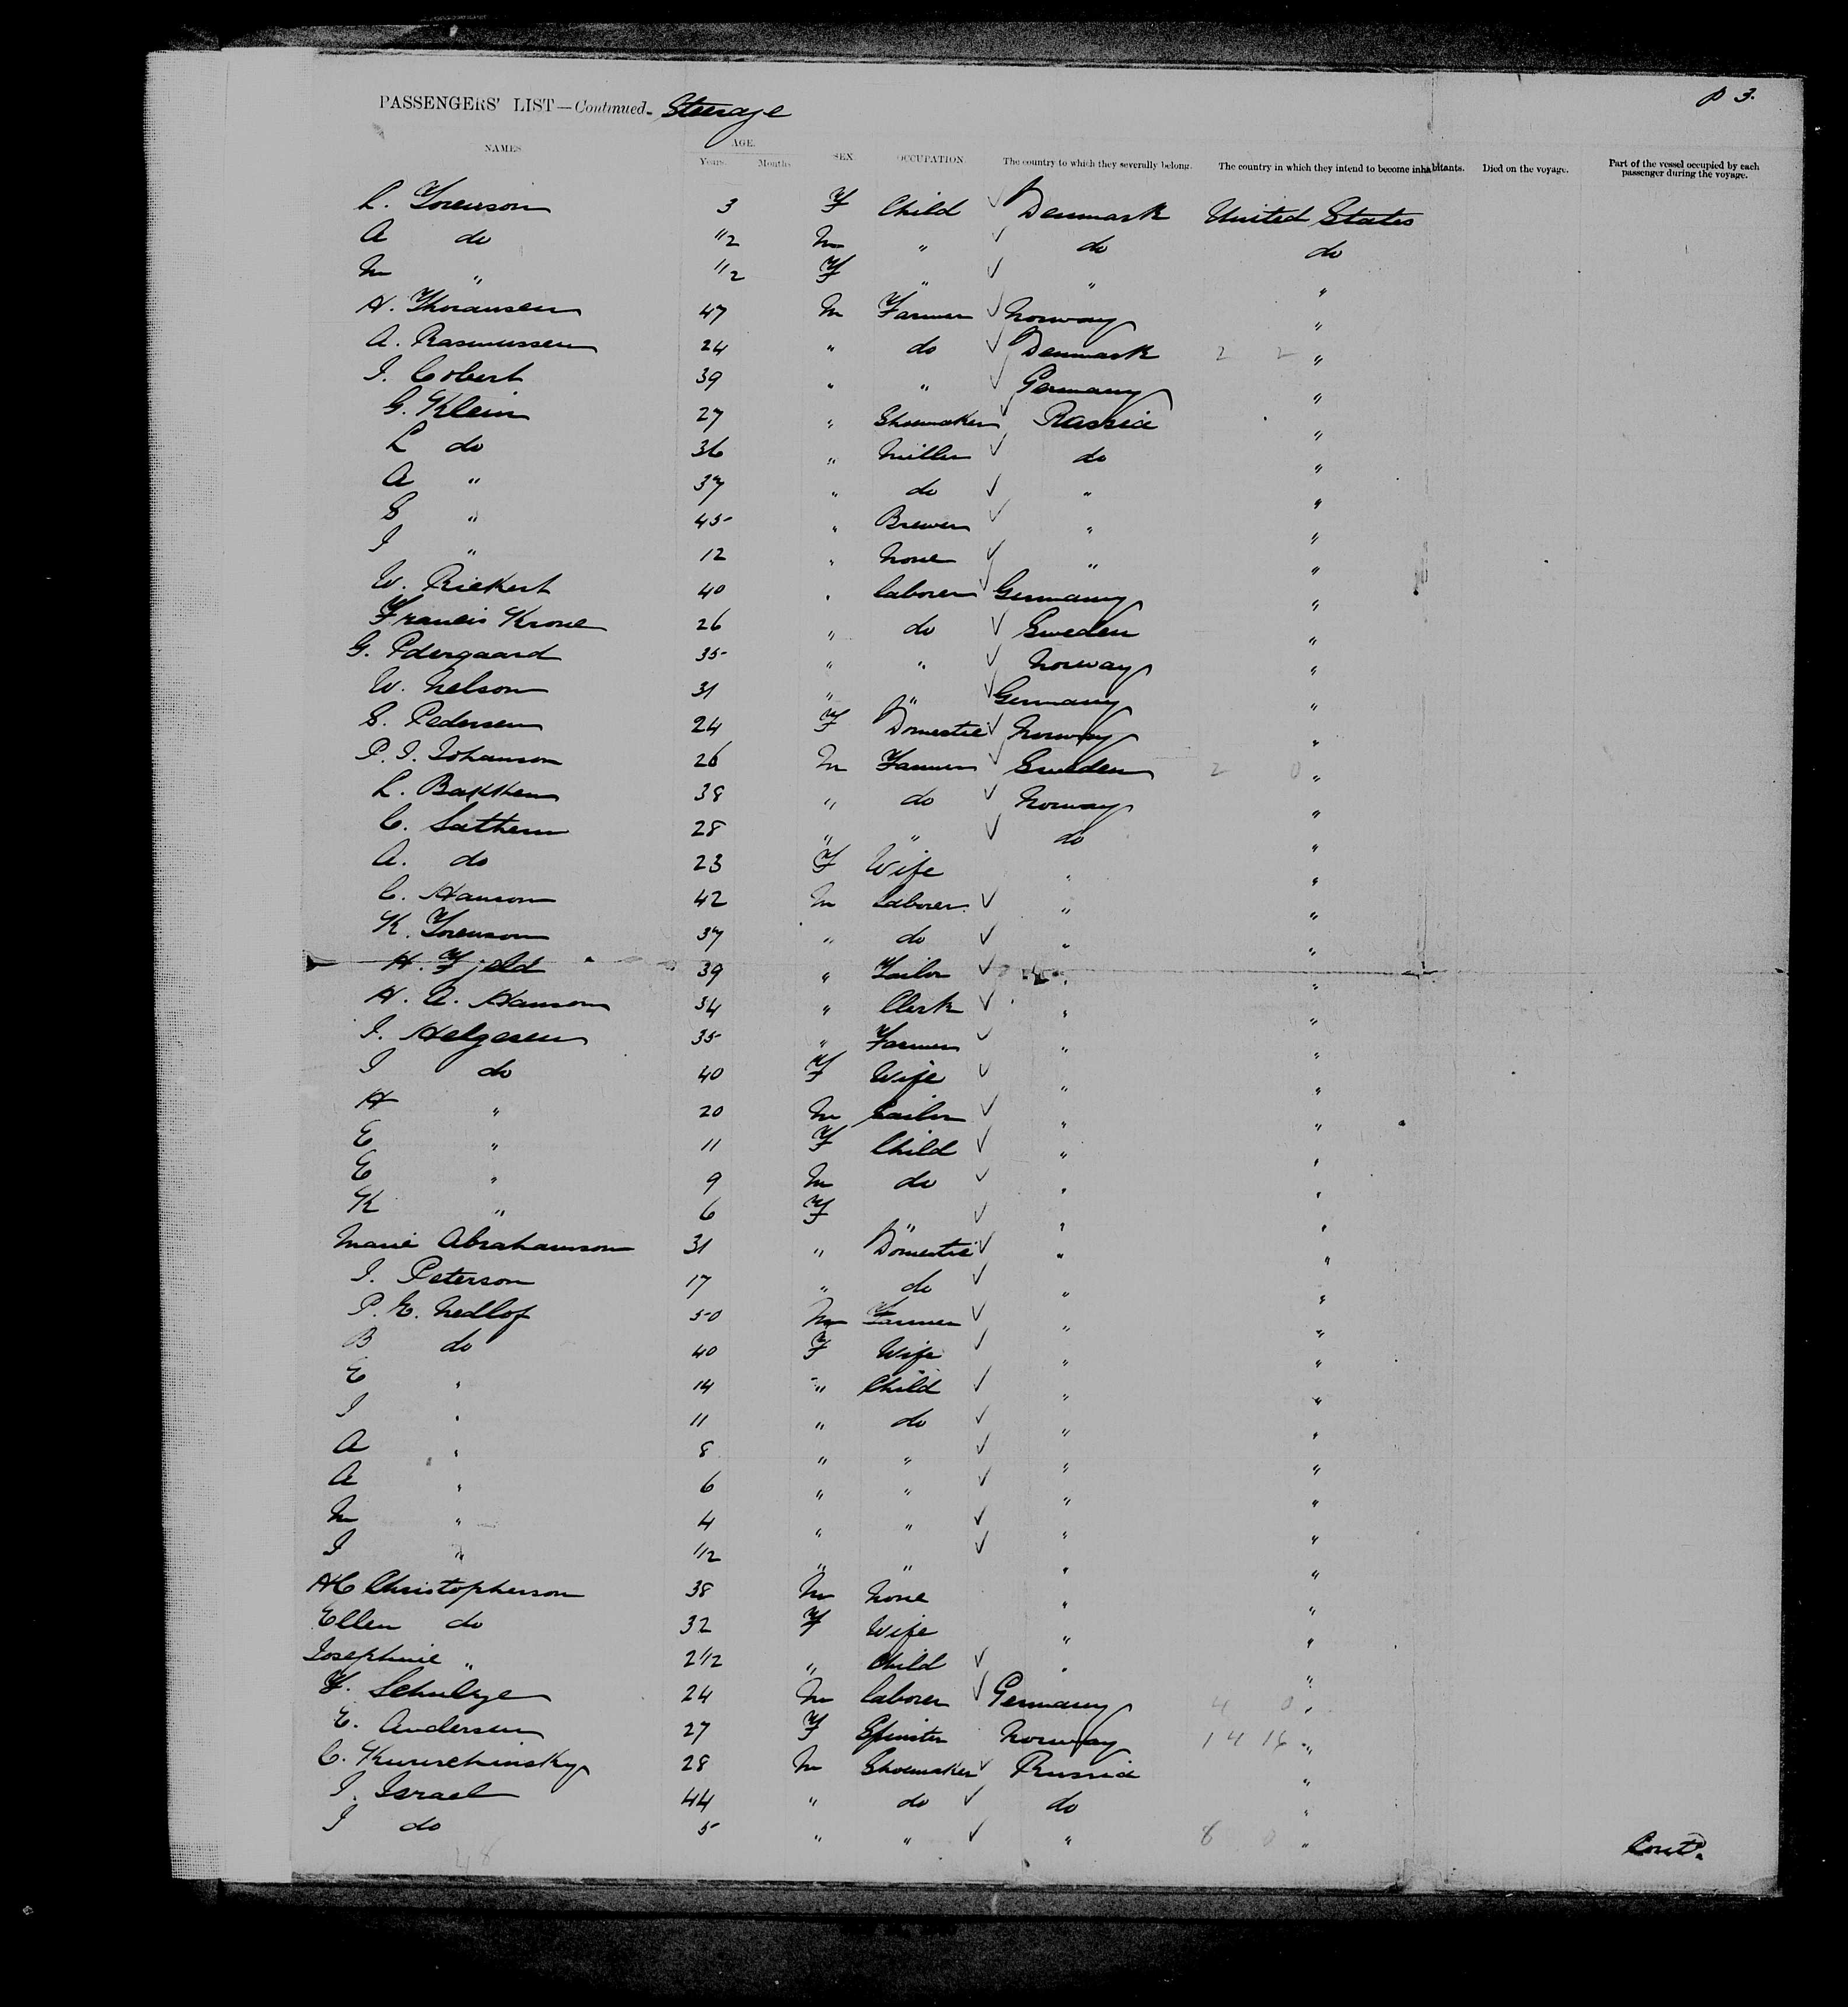 p 3.
PASSENGERS' LIST—Continued. Steerage
NAMES. AGE. SEX. OCCUPATION. The country to which they severally belong. The country in which they intend to become inhabitants. Died on the voyage. Part of the vessel occupied by each passenger during the voyage.
Years. Months.
L. Sorenson 3 F Child ✓ Denmark United States
A do 1/2 M " ✓ do do
M " 1/2 F " ✓ " "
H. Thoransen 47 M Farmer ✓ Norway "
A. Rasmussen 24 " do ✓ Denmark 2 2 "
I. Cobert 39 " " ✓ Germany "
G. Klein 27 " Shoemaker ✓ Russia "
L do 36 " Miller ✓ do "
A " 37 " do ✓ " "
S " 45 " Brewer ✓ " "
I " 12 " None ✓ " "
W. Riekert 40 " laborer ✓ Germany "
Francis Krone 26 " do ✓ Sweden "
G. Pdergaard 35 " " ✓ Norway "
W. Nelson 31 " " ✓ Germany "
S. Pedersen 24 F Domestic ✓ Norway "
P. I. Johanson 26 M Farmer ✓ Sweden 2 0 "
L. Bakken 38 " do ✓ Norway "
C. Sathern 28 " " ✓ do "
A. do 23 F Wife " "
C. Hanson 42 M Laborer ✓ " "
K. Sorenson 37 " do ✓ " "
H. Fjeld 39 " Tailor ✓ " "
H. A. Hanson 34 " Clerk ✓ " "
I. Helgesen 35 " Farmer ✓ " "
I do 40 F Wife ✓ " "
H " 20 M Sailor ✓ " "
E " 11 F Child ✓ " "
E " 9 M do ✓ " "
K " 6 F " ✓ " "
Marie Abrahamson 31 " Domestic ✓ " "
I. Peterson 17 " do ✓ " "
P. E. Nedlof 50 M Farmer ✓ " "
B do 40 F Wife ✓ " "
E " 14 " Child ✓ " "
I " 11 " do ✓ " "
A " 8 " " ✓ " "
A " 6 " " ✓ " "
M " 4 " " ✓ " "
I " 1/2 " " ✓ " "
H C Christopherson 38 M None " "
Ellen do 32 F Wife " "
Josephine " 2 1/2 " Child ✓ " "
F. Schulze 24 M laborer ✓ Germany 4 0 "
E. Andersen 27 F Spinster Norway 14 16 "
C. 28 M Shoemaker ✓ Russia "
I. Israel 44 " do ✓ do "
I do 5 " " ✓ " 8 0 "
48
Contd.